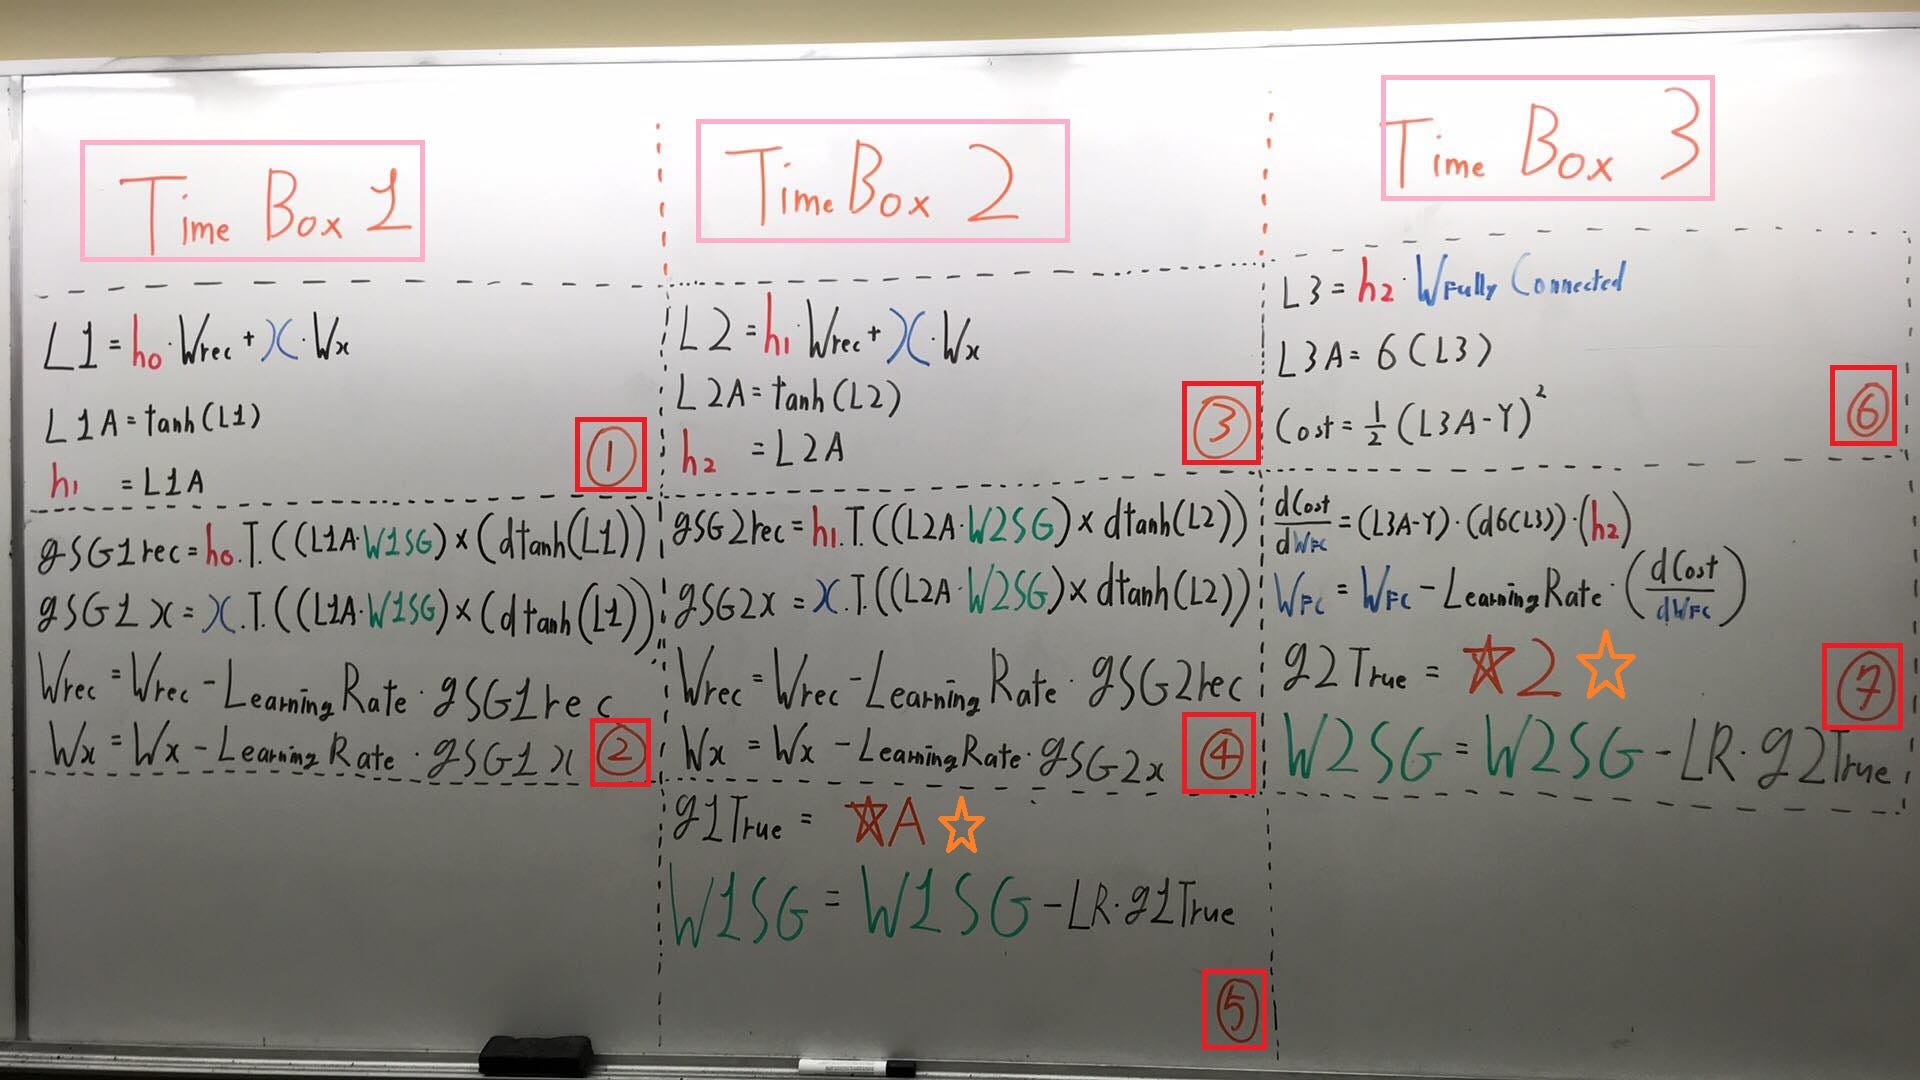 Time Box 1
L1 = h0 · Wrec + X · Wx
L1A = tanh(L1)
h1 = L1A
①
gSG1rec = h0.T.((L1A·W1SG) × (dtanh(L1))
gSG1x = X.T.((L1A·W1SG) × (dtanh(L1))
Wrec = Wrec - Learning Rate · gSG1rec
Wx = Wx - Learning Rate · gSG1x
②
Time Box 2
L2 = h1 · Wrec + X · Wx
L2A = tanh(L2)
h2 = L2A
③
gSG2rec = h1.T.((L2A·W2SG) × dtanh(L2))
gSG2x = X.T.((L2A·W2SG) × dtanh(L2))
Wrec = Wrec - Learning Rate · gSG2rec
Wx = Wx - Learning Rate · gSG2x
④
g1True = ☆A☆
W1SG = W1SG - LR · g1True
⑤
Time Box 3
L3 = h2 · WFully Connected
L3A = 6(L3)
Cost = 1/2 (L3A-Y)²
⑥
dCost/dWFC = (L3A-Y)·(d6(L3))·(h2)
WFC = WFC - Learning Rate · (dCost/dWFC)
g2True = ☆2☆
W2SG = W2SG - LR · g2True
⑦